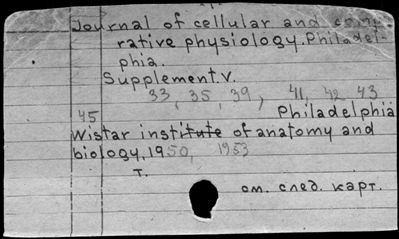 Journal of cellular and compa-
rative physiology. Philadel-
phia.
Supplement. v.
33, 35, 39, 41, 42 43
45 Philadelphia
Wistar institute of anatomy and
biology, 1950, 1953
т.
см. след. карт.